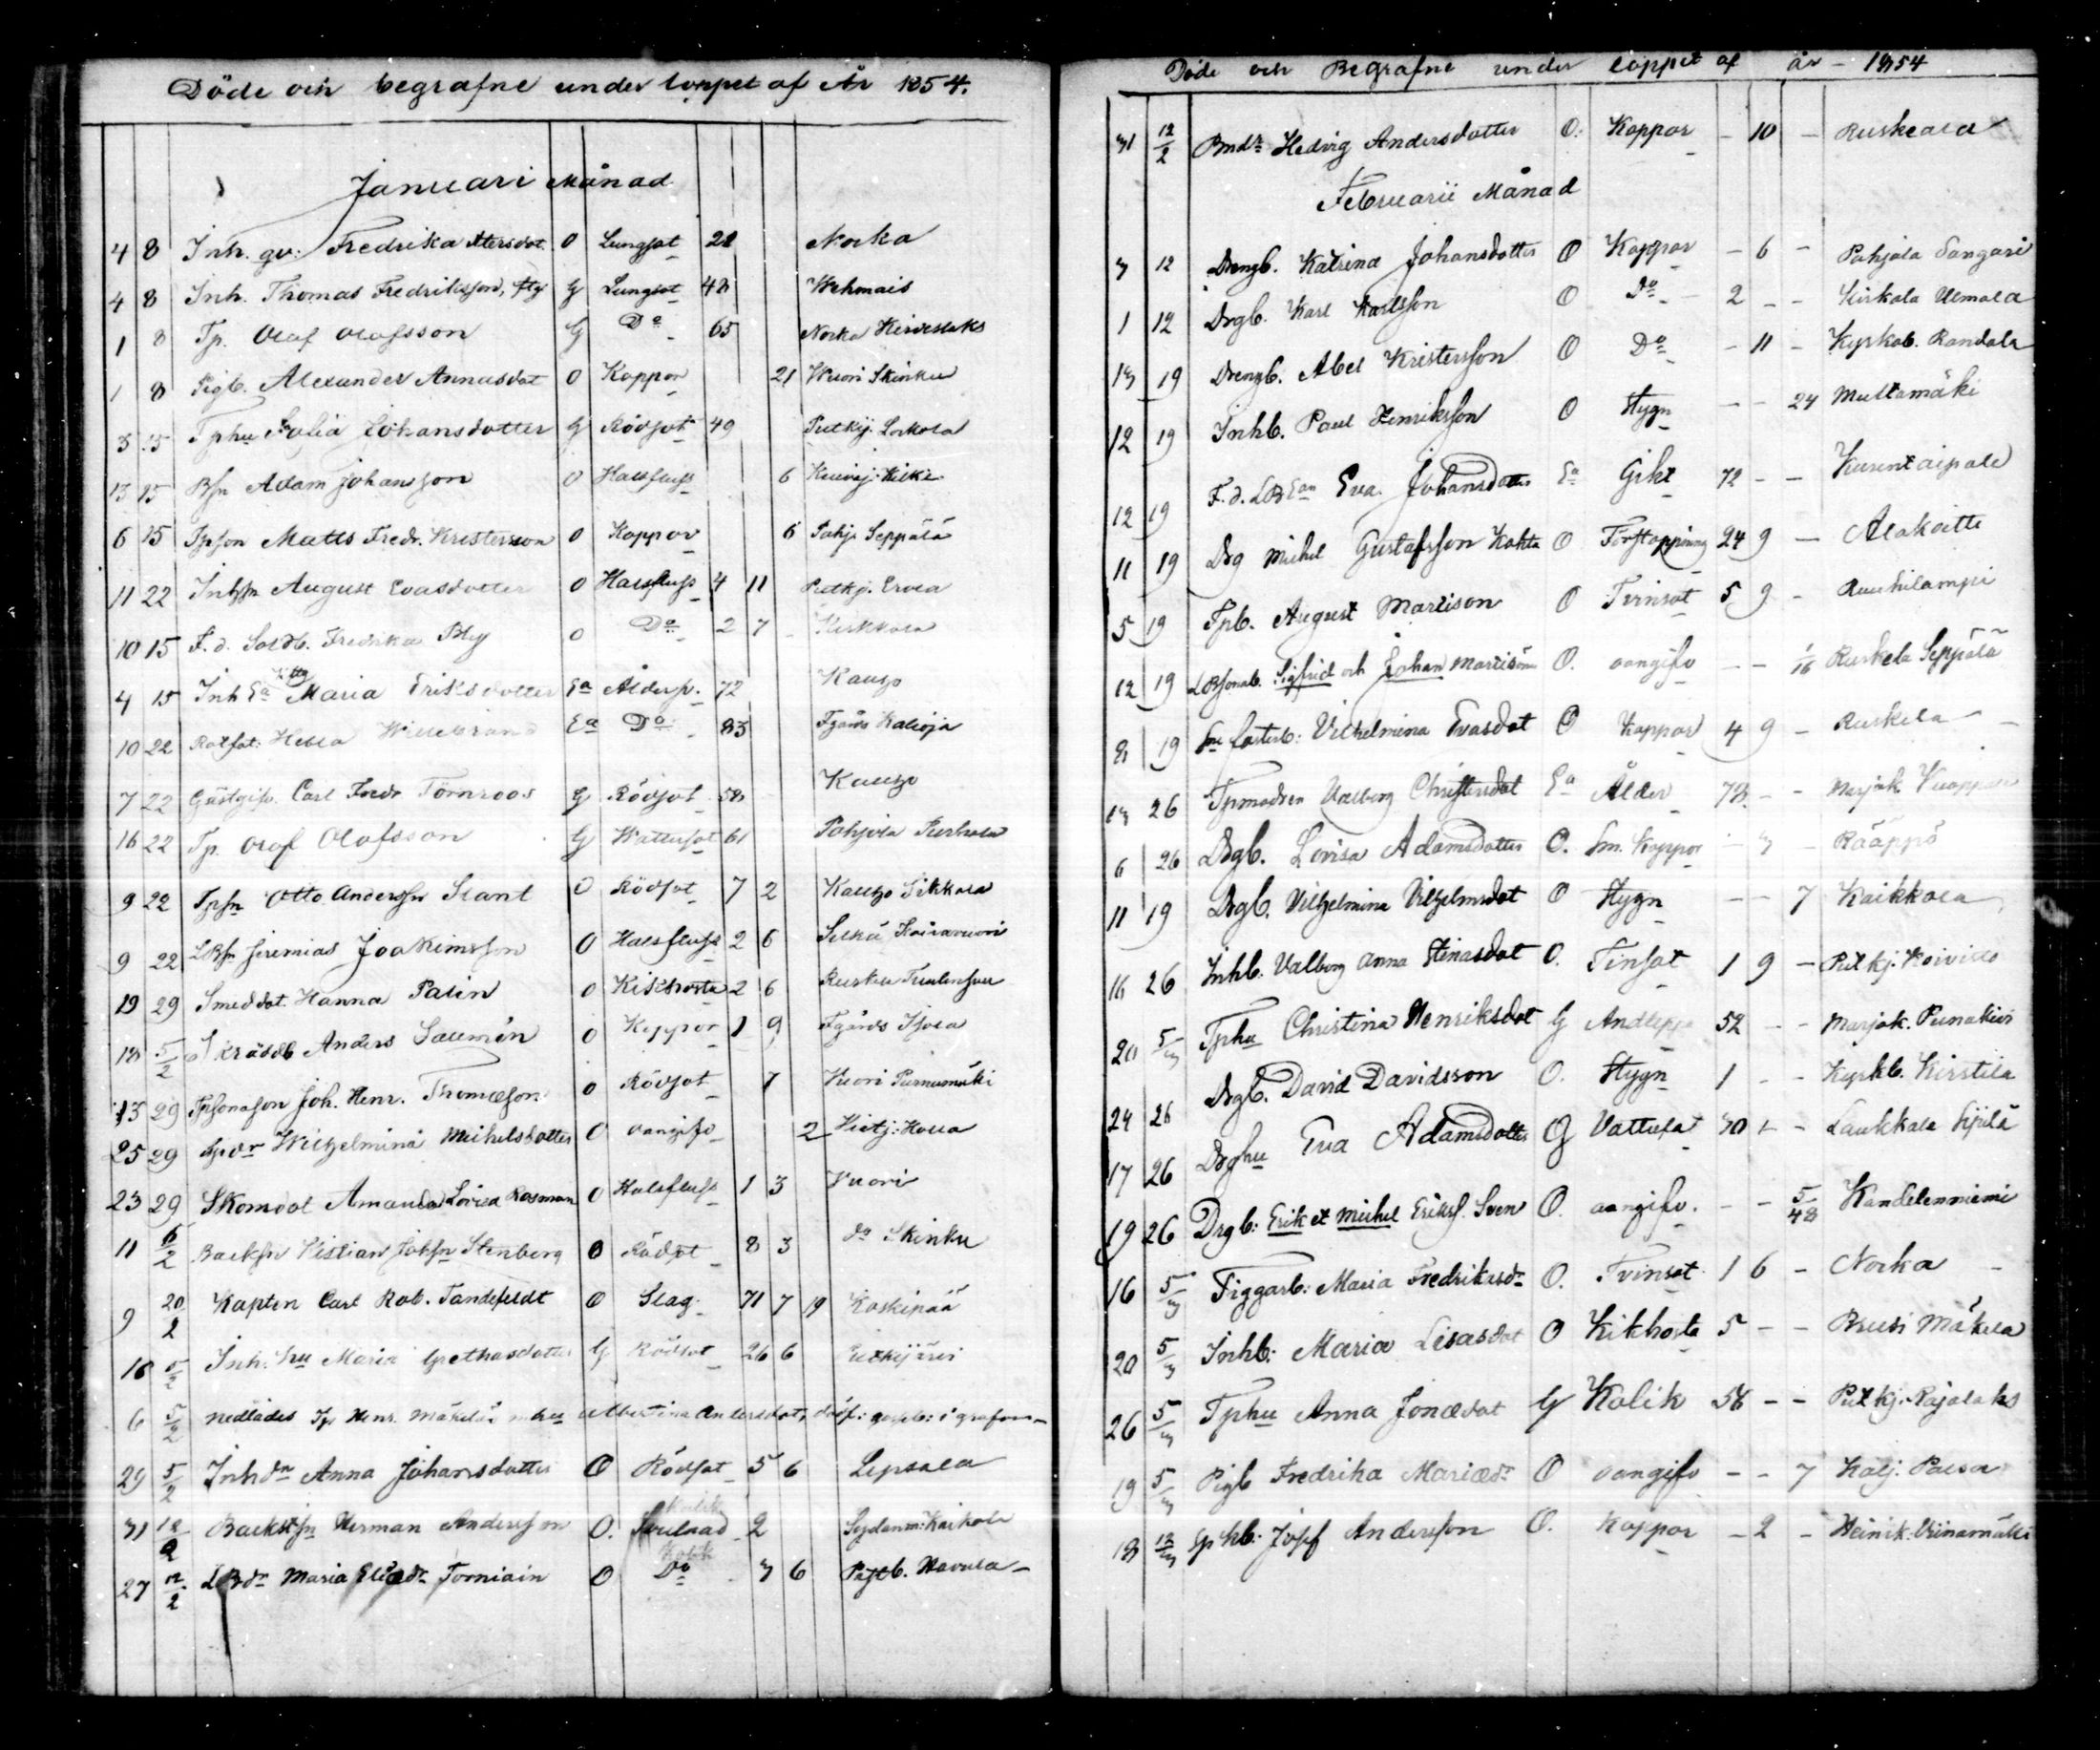 Döde och begrafne under loppet af År 1854.
Januari Månad
4 8 Inh. gv: Fredrika Atersdot. O Lungsot 21 Norka
4 8 Inh. Thomas Fredriksson, ftg G Lungsot 48 Wehmais
1 8 Tp. Olof Olofsson G Do 65 Norka Hirvilaks
1 8 Pigb. Alexander Annasdot O Koppor 21 Wuori Skinku
3 15 Tphu Julia Johansdotter G Rödsot 49 Putkij. Lorkola
13 15 Bsn Adam Johansson O Halsfluss 6 Kuivaj: Kilki
6 15 Tpson Matts Fredr. Kristersson O Koppor 6 Pohj. Seppälä
11 22 Inhsn August Evasdotter O Halsfluss 4 11 Putkj. Erola
10 15 F.d. Soldb. Fredrika Bly O Do 2 7 Kirkkola
4 15 Inh Ea Maria Eriksdotter Ea Åldersv. 72 Kauzo
10 22 Hella Willebrand Ea Do 83 Fgårds Kalioja
7 22 Gästgifv. Carl Fredr Törnroos G Rödsot 58 Kauzo
16 22 Tp. Olof Olofsson G Wattusot 61 Pohjola
9 22 Tpsn Otto Andersson Slant O Rödsot 7 2 Kauzo Sikkola
9 22 LBsn Jeremias Joakimsson O Halsfluss 2 6
19 29 Smeddot. Hanna Palin O Kikhosta 2 6
18 5/2 Skrädb Anders Salmén O Koppor 1 9 Fgårds Isola
13 29 Tpsonason Joh. Henr. Thomasson O Rödsot 7 Vuori Purnumäki
25 29 Wilhelmina Michelsdotter O oangifv 2 Hietj: Holla
23 29 Skomdot Amanda Lovisa Rosman O Halsfluss 1 3 Vuori
11 5/2 Backsn Kistian Johsn Stenberg O Rödsot 8 3 do Skinku
9 20/2 Kapten Carl Rob. Tandefeldt O Slag 71 7 19 Koskipää
16 5/2 Inh. hu Maria Grethasdotter G Rödsot 26 6 Putkijärvi
6 5/2 nedlades Tp Henr. Mäkelä's Albertina Andersdot, i grafven
29 5/2 Inhdr Anna Johansdotter O Rödsot 5 6 Lepsala
31 12/2 Backstsn Herman Andersson O. Kolik 2 Sydänm: Kaikola
27 12/2 LBdr Maria Eliædr Torniain O Do Kolik 3 6 Havula
Döde och Begrafne under loppet af år 1854
31 12/2 Bmdr Hedvig Andersdotter O. Koppor - 10 - Ruskeala
Februarii Månad
3 12 Drengb. Katrina Johansdotter O Koppor - 6 - Pohjola Sangari
1 12 Drgb. Karl Karlsson O Do 2 - - Kirkola Uemala
13 19 Drengb. Abel Kristersson O Do - 11 - Kyrkob. Randala
12 19 Inhb. Paul Henriksson O Stygn - - 24 Multamäki
12 19 F.d. LBEan Eva Johansdotter Ea Gikt 72 - - Kurentaipale
11 19 Drg Michel Gustafsson Kohta O Förstoppning 24 9 - Alakoitti
5 19 Tpb. August Martison O Tvinsot 5 9 - Ruuhilampi
12 19 LBsonab. Sigfrid och Johan Martisöner O. oangifv - - 1/16 Ruskela Seppälä
8 19 Vilhelmina Evasdot O Koppor 4 9 - Ruskela
13 26 Tpmodren Valborg Christersdot Ea Ålder 78 - - Marjok
6 26 Drgb. Lovisa Adamsdotter O. Sm. Koppor - 3 - Rääppö
11 19 Drgb. Vilhelmina Vilhelmsdot O Stygn - - 7 Kaikkola
16 26 Inhb. Valborg Anna Stinasdot O. Tinsot 1 9 - Putkj. Koivisto
20 5/3 Tphu Christina Henriksdot G Andtäppa 52 - - Marjok. Punakivi
24 26 Drgb. David Davidsson O. Stygn 1 - - Kyrkb. Kirstilä
17 26 Drghu Eva Adamsdotter G Vattusot 30 - - Laukkala Sipilä
19 26 Drgb: Erik et Michel Eriks. Sven O. oangifv. - - 5/48 Kandelenniemi
16 5/3 Tiggarb: Maria Fredriksdr O. Tvinsot 1 6 - Norka
20 5/3 Inhb: Maria Lisasdot O Kikhosta 5 - - Brusi Mäkelä
26 5/3 Tphu Anna Jonædot G Kolik 58 - - Putkj. Rajalaks
19 5/3 Pigb Fredrika Mariædr O oangifv - - 7 Kalj. Paesa
18 12/3 Josef Andersson O. Koppor - 2 - Heinik: Viinamäki